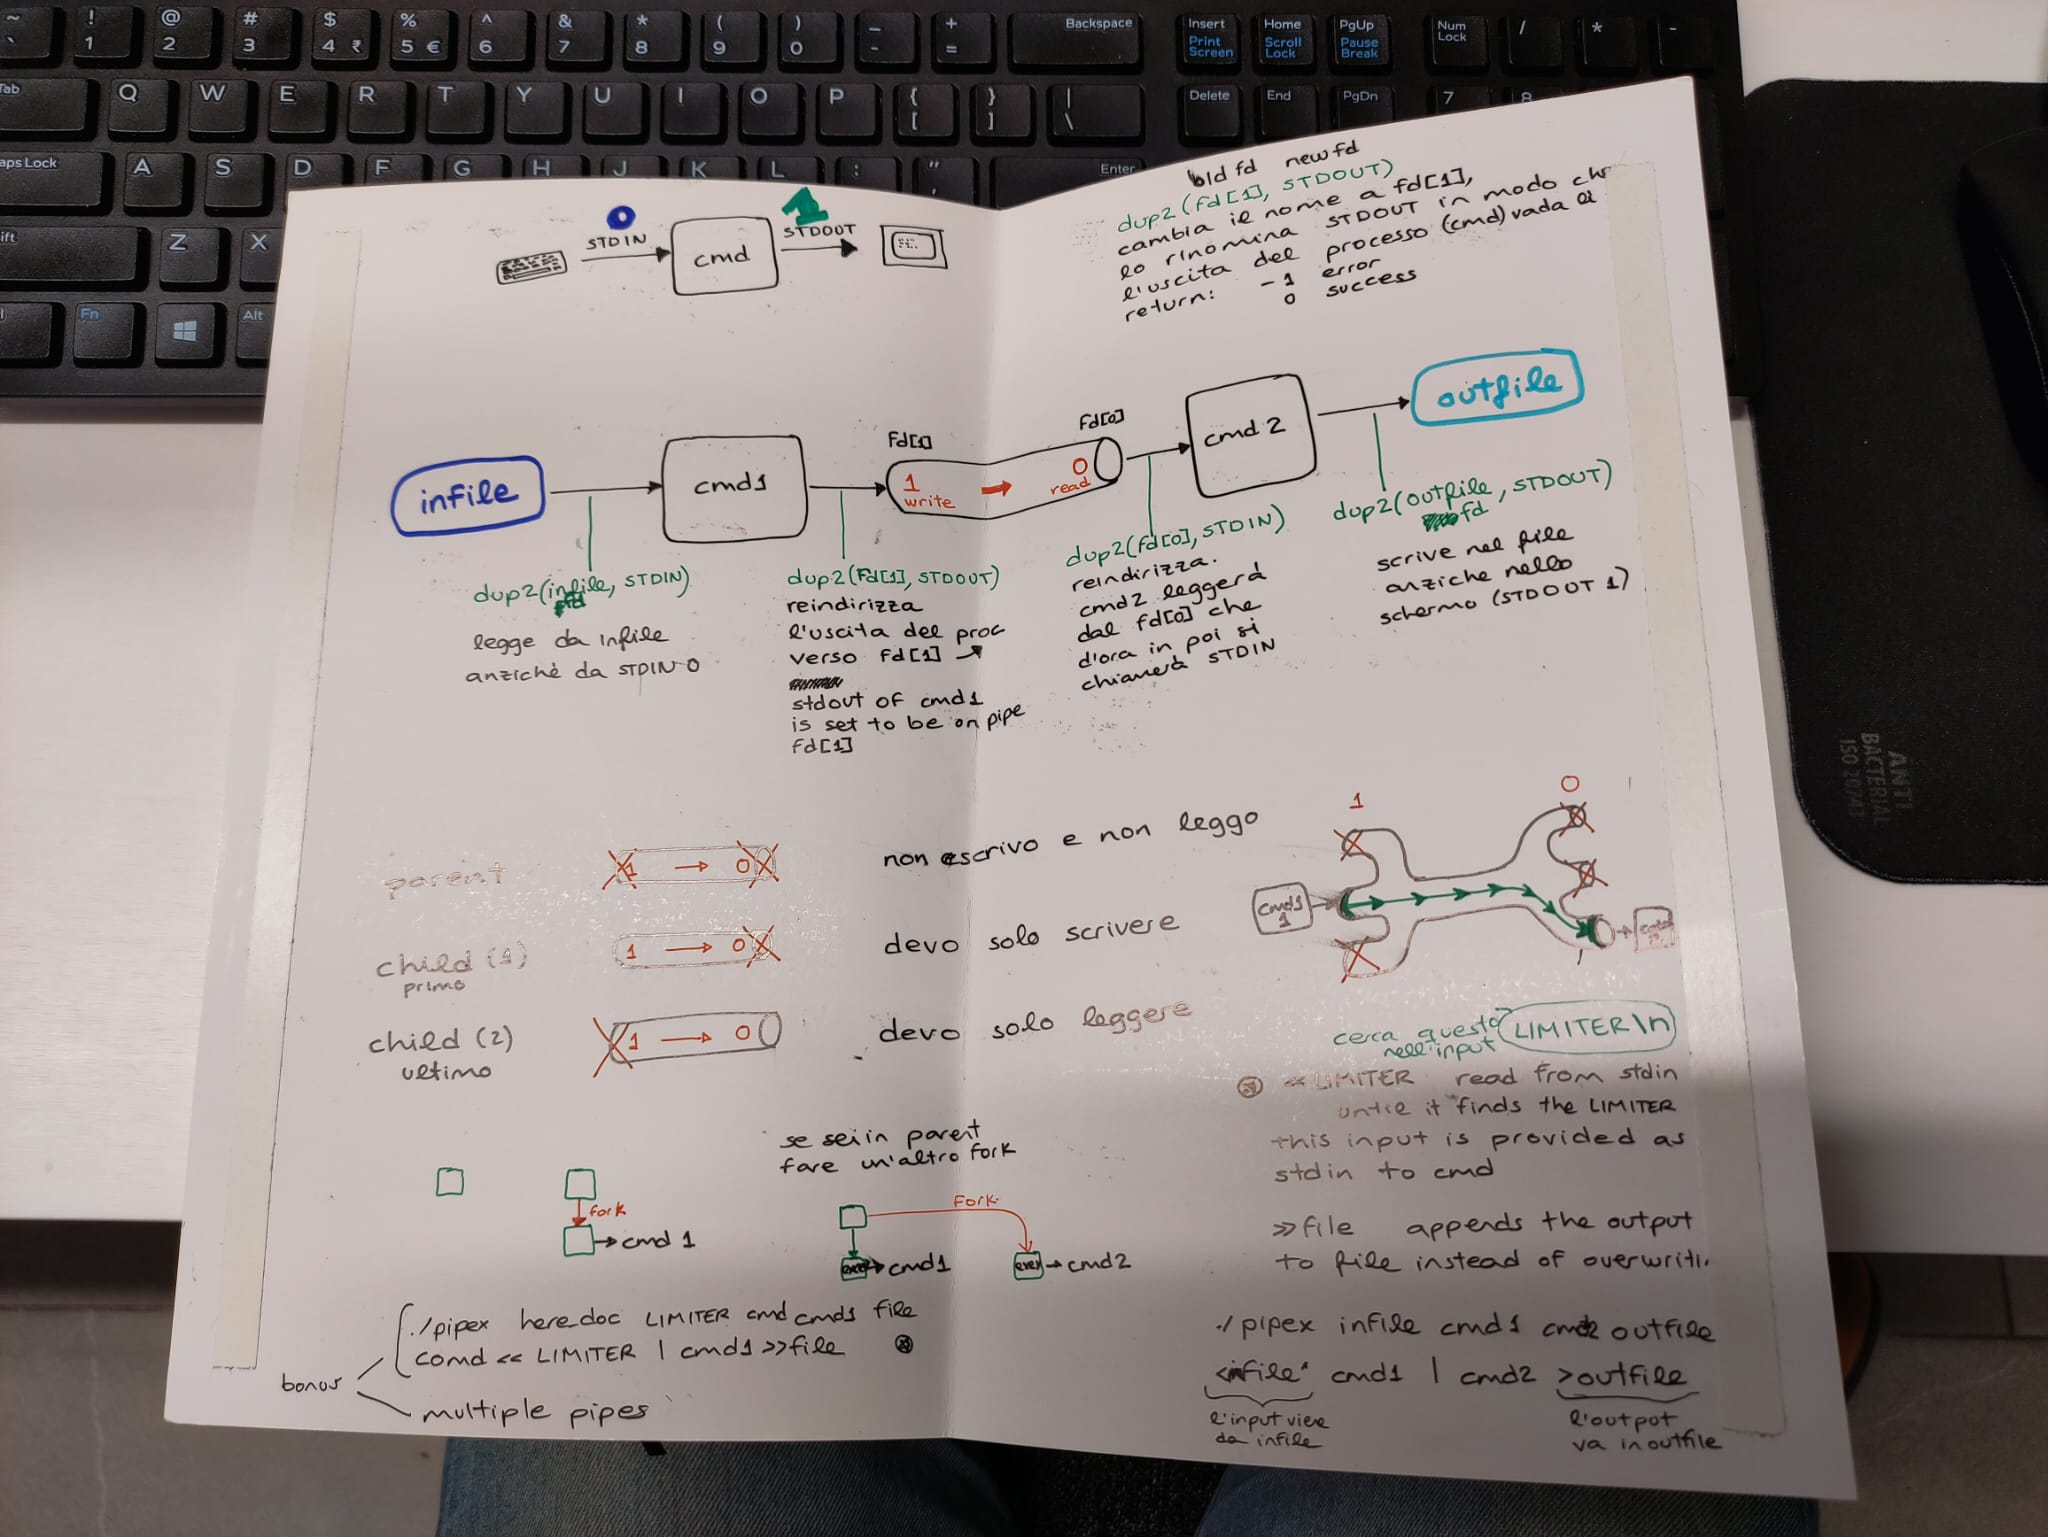 ~ ! @ # $ % ^ & * ( ) _ + Backspace
` 1 2 3 4 ₹ 5 € 6 7 8 9 0 - =
Insert Home PgUp Num Lock / * -
Print Screen Scroll Lock Pause Break
Tab Q W E R T Y U I O P { [ } ] | \
Delete End PgDn 7 8
Caps Lock A S D F G H J K L : " Enter
Z X
Fn Alt
ANTI
BACTERIAL
ISO 20743
0
STDIN
cmd
1
STDOUT
old fd new fd
dup2(fd[1], STDOUT)
cambia il nome a fd[1],
lo rinomina STDOUT in modo che
l'uscita del processo (cmd) vada lì
return: -1 error
0 success
infile
cmd1
fd[1]
1
write
fd[0]
0
read
cmd2
outfile
dup2(infile, STDIN)
fd
legge da infile
anzichè da STDIN 0
dup2(Fd[1], STDOUT)
reindirizza
l'uscita del proc
verso Fd[1]
stdout of cmd1
is set to be on pipe
fd[1]
dup2(fd[0], STDIN)
reindirizza.
cmd2 leggerà
dal fd[0] che
d'ora in poi si
chiamerà STDIN
dup2(outfile, STDOUT)
fd
scrive nel file
anziche nello
schermo (STDOUT 1)
parent
1 → 0
non scrivo e non leggo
child (1)
primo
1 → 0
devo solo scrivere
child (2)
ultimo
1 → 0
devo solo leggere
1
0
cmd1
1
cerca questo LIMITER\n
nell'input
<< LIMITER read from stdin
until it finds the LIMITER
this input is provided as
stdin to cmd
>> file appends the output
to file instead of overwriti
se sei in parent
fare un'altro fork
fork
→ cmd 1
Fork
exec → cmd1
exec → cmd2
bonus
./pipex here_doc LIMITER cmd cmd1 file
comd << LIMITER | cmd1 >> file
multiple pipes
./pipex infile cmd1 cmd2 outfile
<infile cmd1 | cmd2 >outfile
l'input viene
da infile
l'outpot
va in outfile